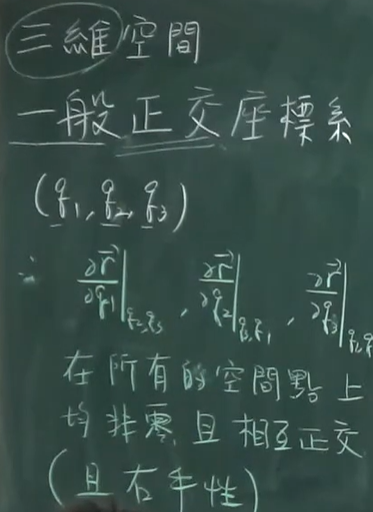 三維空間
一般正交座標系
(q₁, q₂, q₃)
∴ ∂r⃗/∂q₁|q₂,q₃ , ∂r⃗/∂q₂|q₃,q₁ , ∂r⃗/∂q₃|q₁,q
在所有的空間點上
均非零且相互正交
(且右手性)